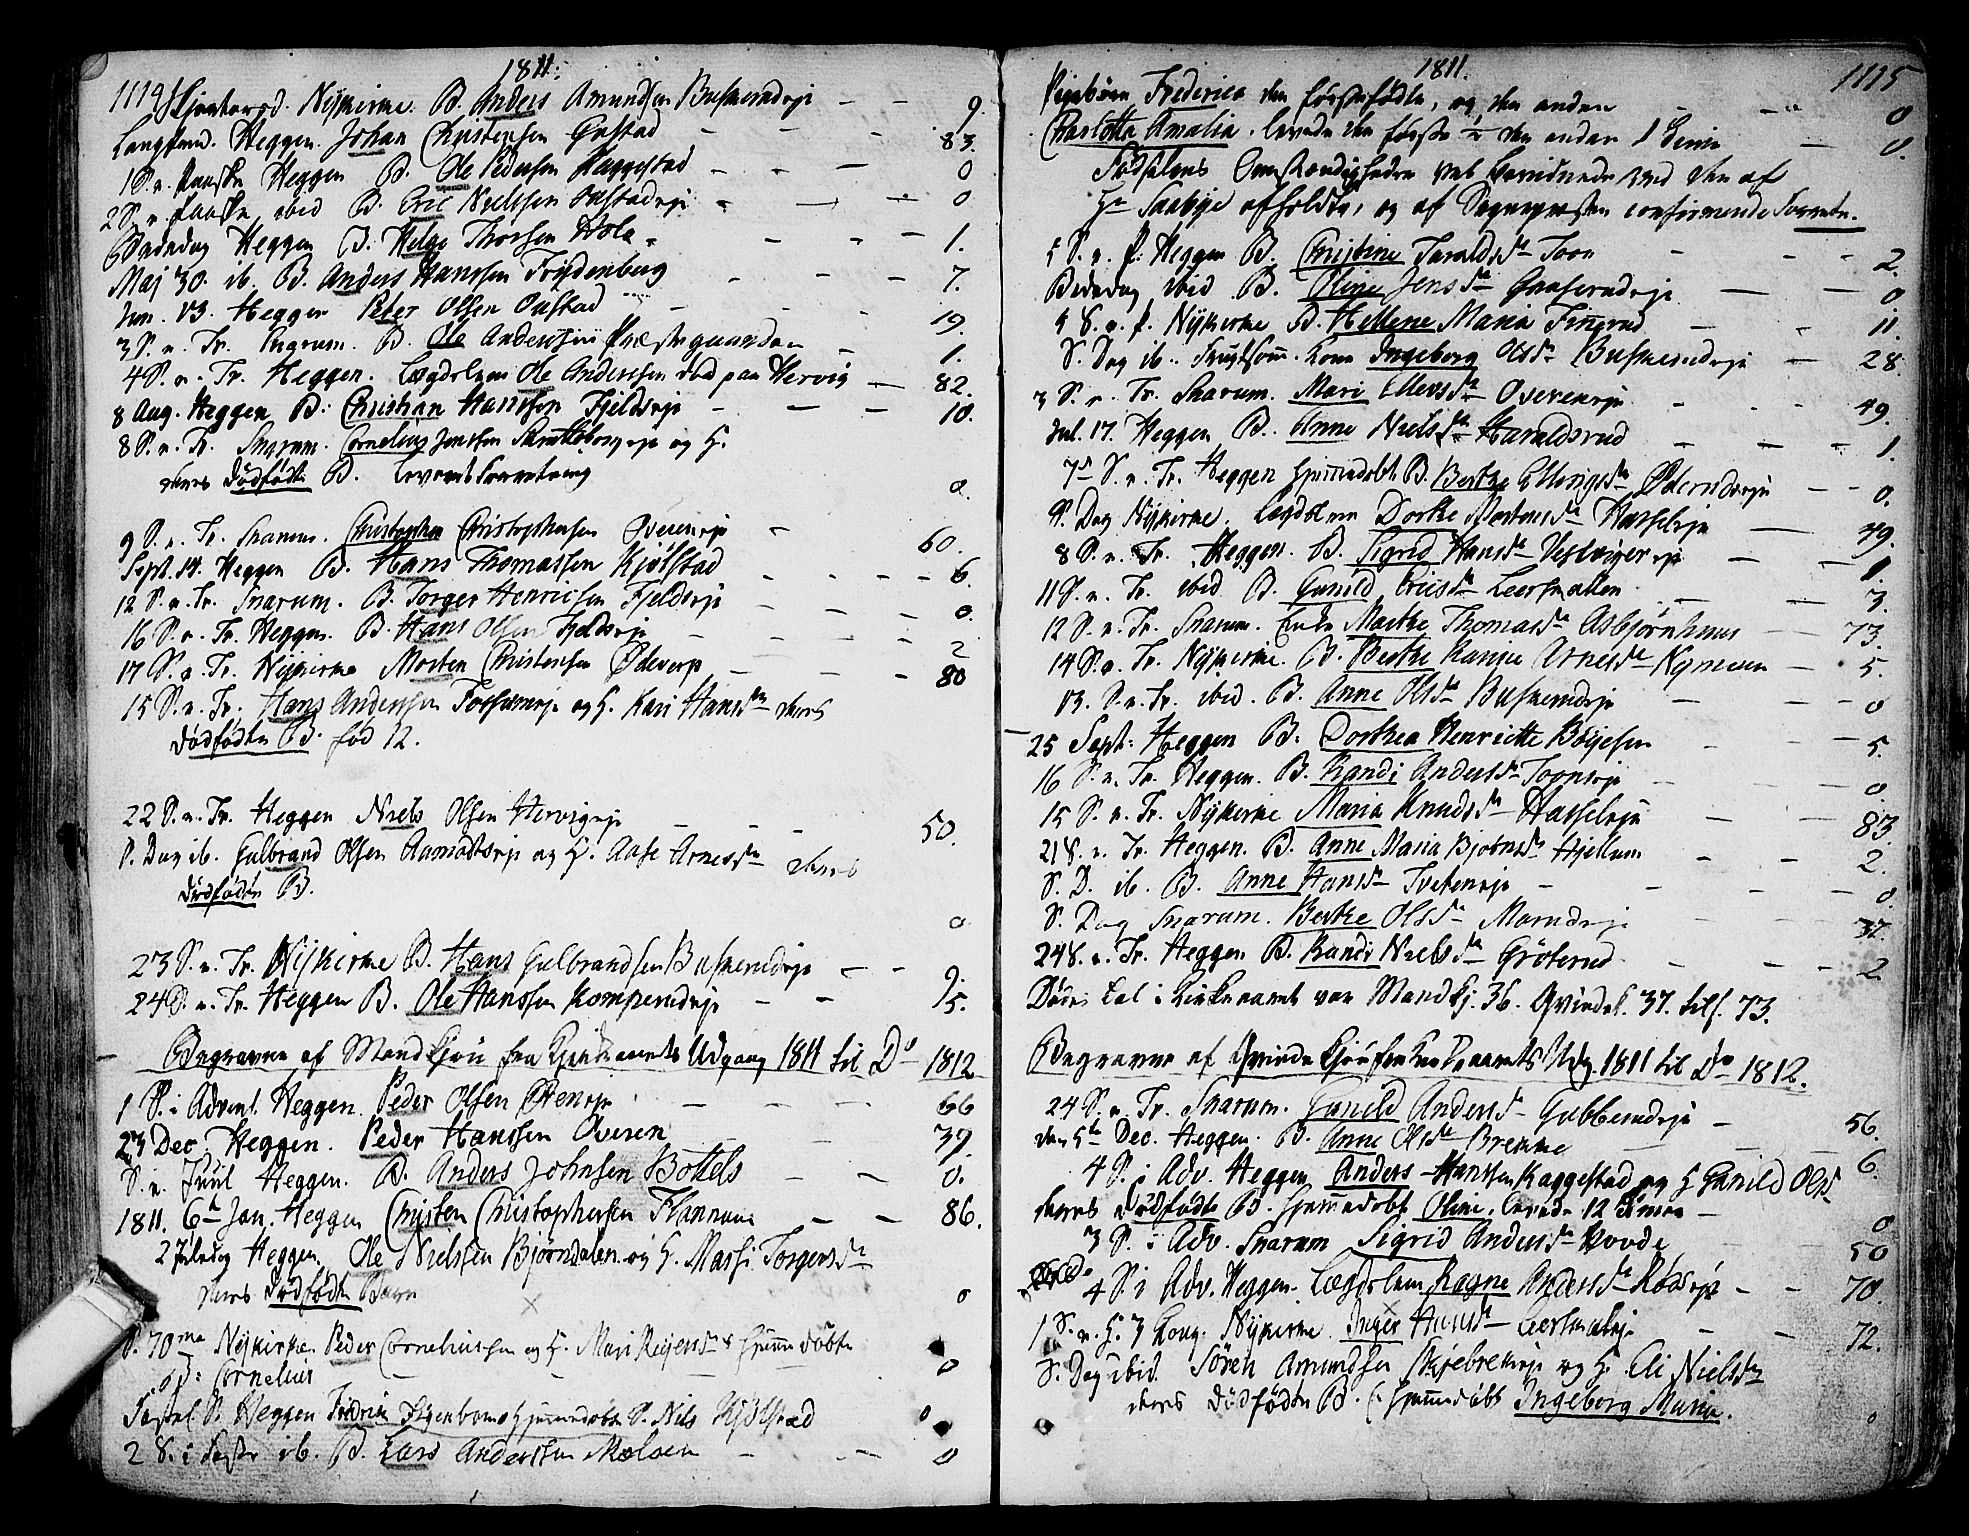 1811.
1114 Skjertorsd. Nÿkirke B. Anders Amundsen Buskerudeje — — 9.
Langfred. Heggen. Johan Christensen Gustad — — 83.
1 S. e. Paaske Heggen B. Ole Pedersen Kaggestad — — 0
2 S. e. Paaske, ibid B. Eric Nielssen eje — — 0
Bededag Heggen B. Helge Thorsen Hole — — 1.
Maj 30. ib. B. Anders Hanssen Frydenberg — — 7.
Jun. 13. Heggen Peder Olsen Onstad — 19.
3 S. e. Tr. Snarum. B. Ole Anderssen Præstegaarden — 1.
4 S. e. Tr. Heggen. Lægdslem Ole Anderssen død paa Hervig — 82.
8 Aug. Heggen B. Christian Hanssen Fjeldeje — — 10.
8 S. e. Tr. Snarum. Cornelius Jenssen eje og H.
deres dödfödte B. 0.
9 S. e. Tr. Snarum. Christopher Christophersen Overeneje — 60.
Sept. 14. Heggen B. Hans Thomassen Kjölstad — — 6.
12 S. e. Tr. Snarum. B. Torger Henricsen Fjeldeje — — 0.
16 S. e. Tr. Heggen. B. Hans Olsen Fjeldeje — — 2
17 S. e. Tr. Nÿkirke Morten Christensen — — 80
15 S. e. Tr. Hans Andersen eje og H. Kari Hansdr deres
dödfödte B. föd 12.
22 S. e. Tr. Heggen Niels Olsen Hervigeje — — 50.
S. Dag ib. Gulbrand Olsen Aamodtseje og H. Aase Arnesdr deres
dödfödte B. 0
23 S. e. Tr. Nÿkirke B. Hans Gulbrandsen Buskerudeje — — 9.
24 S. e. Tr. Heggen B. Ole Hanssen Komperudeje — — 5.
Begravne af Mandkjön fra Kirkeaarets Udgang 1811 til Do 1812
1 S. i Advent. Heggen. Peder Olsen eje — — 66
23 Dec. Heggen. Peder Hanssen Overen — — 39.
S. e. Juul Heggen. B. Anders Johnsen Bottels — — 0.
1811. 6te Jan. Heggen Christen Christophersen Flannum — — 86.
2 Juledag Heggen. Ole Nielssen Björndalen og H. Massi Torgersdr
deres Dödfödte Barn 0
S. 70ma Nÿkirke. Peder Corneliussen og H. Mari Reiersdr hjemmedöbte
B. Cornelius — 0
Fastel. S. Heggen hjemmedöbt S. Nils Kjölstad 0
2 S. i Faste ib. B. Lars Anderssen Moloen — — 0
1811. 1115
Pigebörn Frederica den förstefödte, og den anden — — 0
Charlotta Amalia. levede den förste ½ den anden 1 — 0.
Födselens Omstændigheder ved den af
Hr Saabye afholdte, og af Sognepræsten
5 S. e. P. Heggen B. Christine Taraldsdr Toon — — 2.
Bededag ibid B. Oline Jensdr eje — — 0
4 S. e. P. Nÿkirke B. Hellene Maria Fingrud — 11.
S. Dag ib. Kone Ingeborg Olsdr Buskerudeje — 28.
3 S. e. Tr. Snarum. Mari Ellevsdr Overeneje — — 49.
Jul. 17. Heggen B. Anne Nielsdr Haraldsrud — — 1.
7 S. e. Tr. Heggen hjemmedöbt B. Berthe Ellingsdr eje — — 0.
S. Dag Nÿkirke. Lægdslem Dorthe Mortensdr Hasseleje — 49.
8 S. e. Tr. Heggen. B. Sigrid Hansdr eje — — 1
11 S. e. Tr. ibid B. Gunild Ericsdr — — 3.
12 S. e. Tr. Snarum. Enke Marthe Thomasdr Asbjörnhuus — 73.
14 S. e. Tr. Nÿkirke. B. Berthe Karine Arnesdr Nymoen — 5.
13. S. e. Tr. ibid. B. Anne Olsdr Buskerudeje — — 0
25 Sept: Heggen B. Dorthea Henriette Böyesen — — 5.
16 S. e. Tr. Heggen. B. Randi Andersdr Tooneje — — 0.
15 S. e. Tr. Nÿkirke Maria Knudsdr Hasseleje — — 83.
21 S. e. Tr. Heggen. B. Anne Maria Bjornsdr Hjellum — — 2.
S. D. ib. B. Anne Hansdr Tveteneje — — 0.
S. Dag Snarum. Berthe Olsdr eje — — 37.
24 S. e. Tr. Heggen B. Randi Nielsdr Gröterud — — 2
Dödes Tal i Kirkeaaret var Mandkj. 36. Qvindek. 37. tils. 73.
Begravne af Qvindekjön fra Kirkeaarets Udg. 1811 til Do 1812.
24 S. e. Tr. Snarum. Gunild Andersdr Gubberudeje — 56.
den 5te Dec. Heggen. B. Anne Olsdr Brekke — — 6.
4 S. i Adv. Heggen Anders Hanssen Kaggestad og H Gunild Olsdr
deres Dödfödte B. hjemmedöbt Oline, levede 12 Timer — 0
3 S. i Adv. Snarum Sigrid Andersdr Hovde — 50
4 S. i Adv. Heggen. Lægdslem Ragne Andersdr eje — — 70.
1 S. e. H. 3 Kong. Nÿkirke. Inger Hansdr eje — — 72.
S. Dag ibid. Sören Amundsen eje og H. Eli Nielsdr
deres dödfödte B. (hjemmedöbt Ingeborg Maria. 0